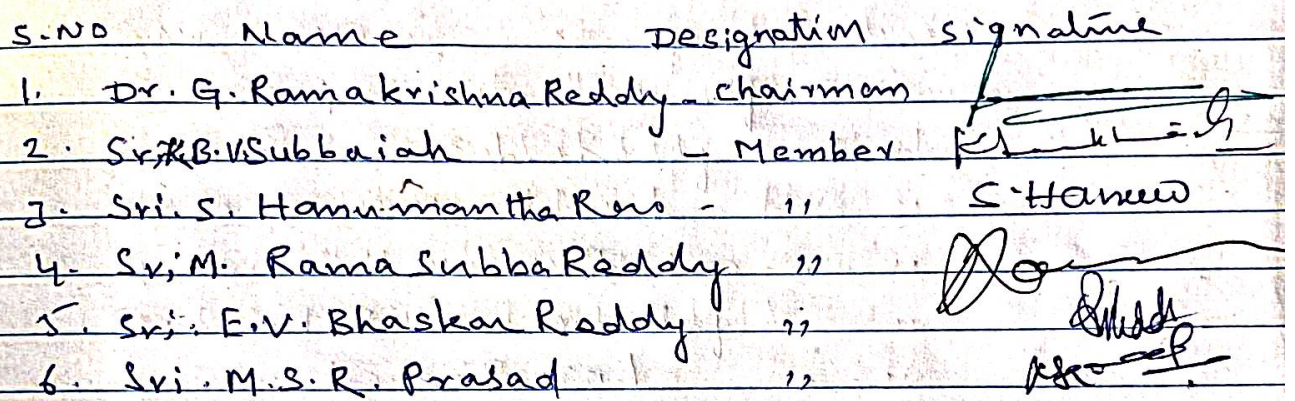 S.NO Name Designation Signature
1. Dr. G. Ramakrishna Reddy - Chairman
2. Sri B.V.Subbaiah - Member
3. Sri. S. Hanumantha Rao - ,, S. Hanu
4. Sri M. Rama Subba Reddy ,,
5. Sri. E.V. Bhaskar Reddy ,,
6. Sri. M.S.R. Prasad ,,